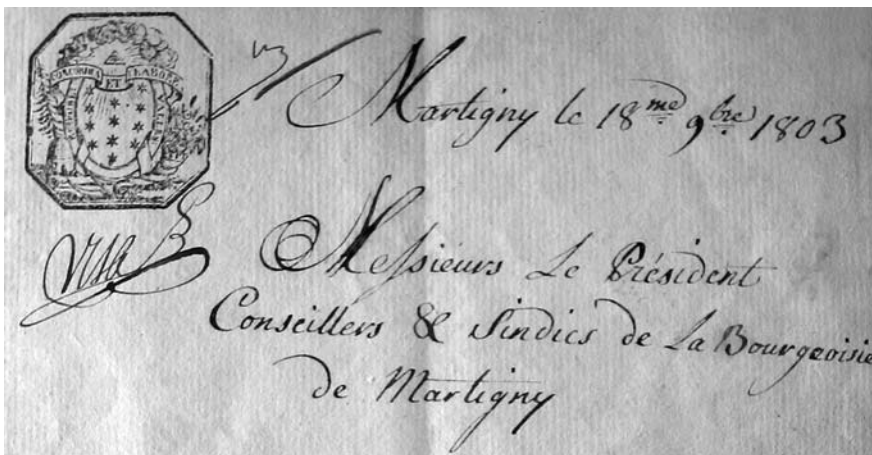 CONCORDIA ET LABORE
Martigny le 18me 9bre 1803
Visa
Messieurs Le Président
Conseillers & Sindics de La Bourgeoisie
de Martigny